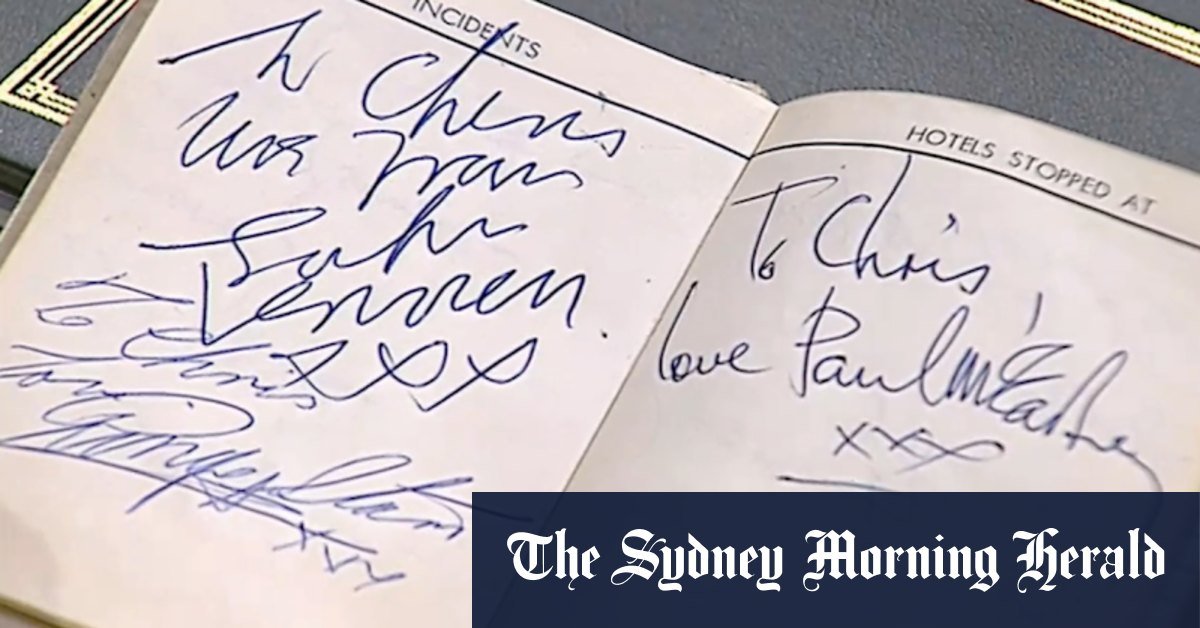 INCIDENTS
To Chris
love from
John
Lennon.
xxx
To Chris
love
Ringo Starr
xxx
HOTELS STOPPED AT
To Chris,
love Paul McCartney
xxx
The Sydney Morning Herald